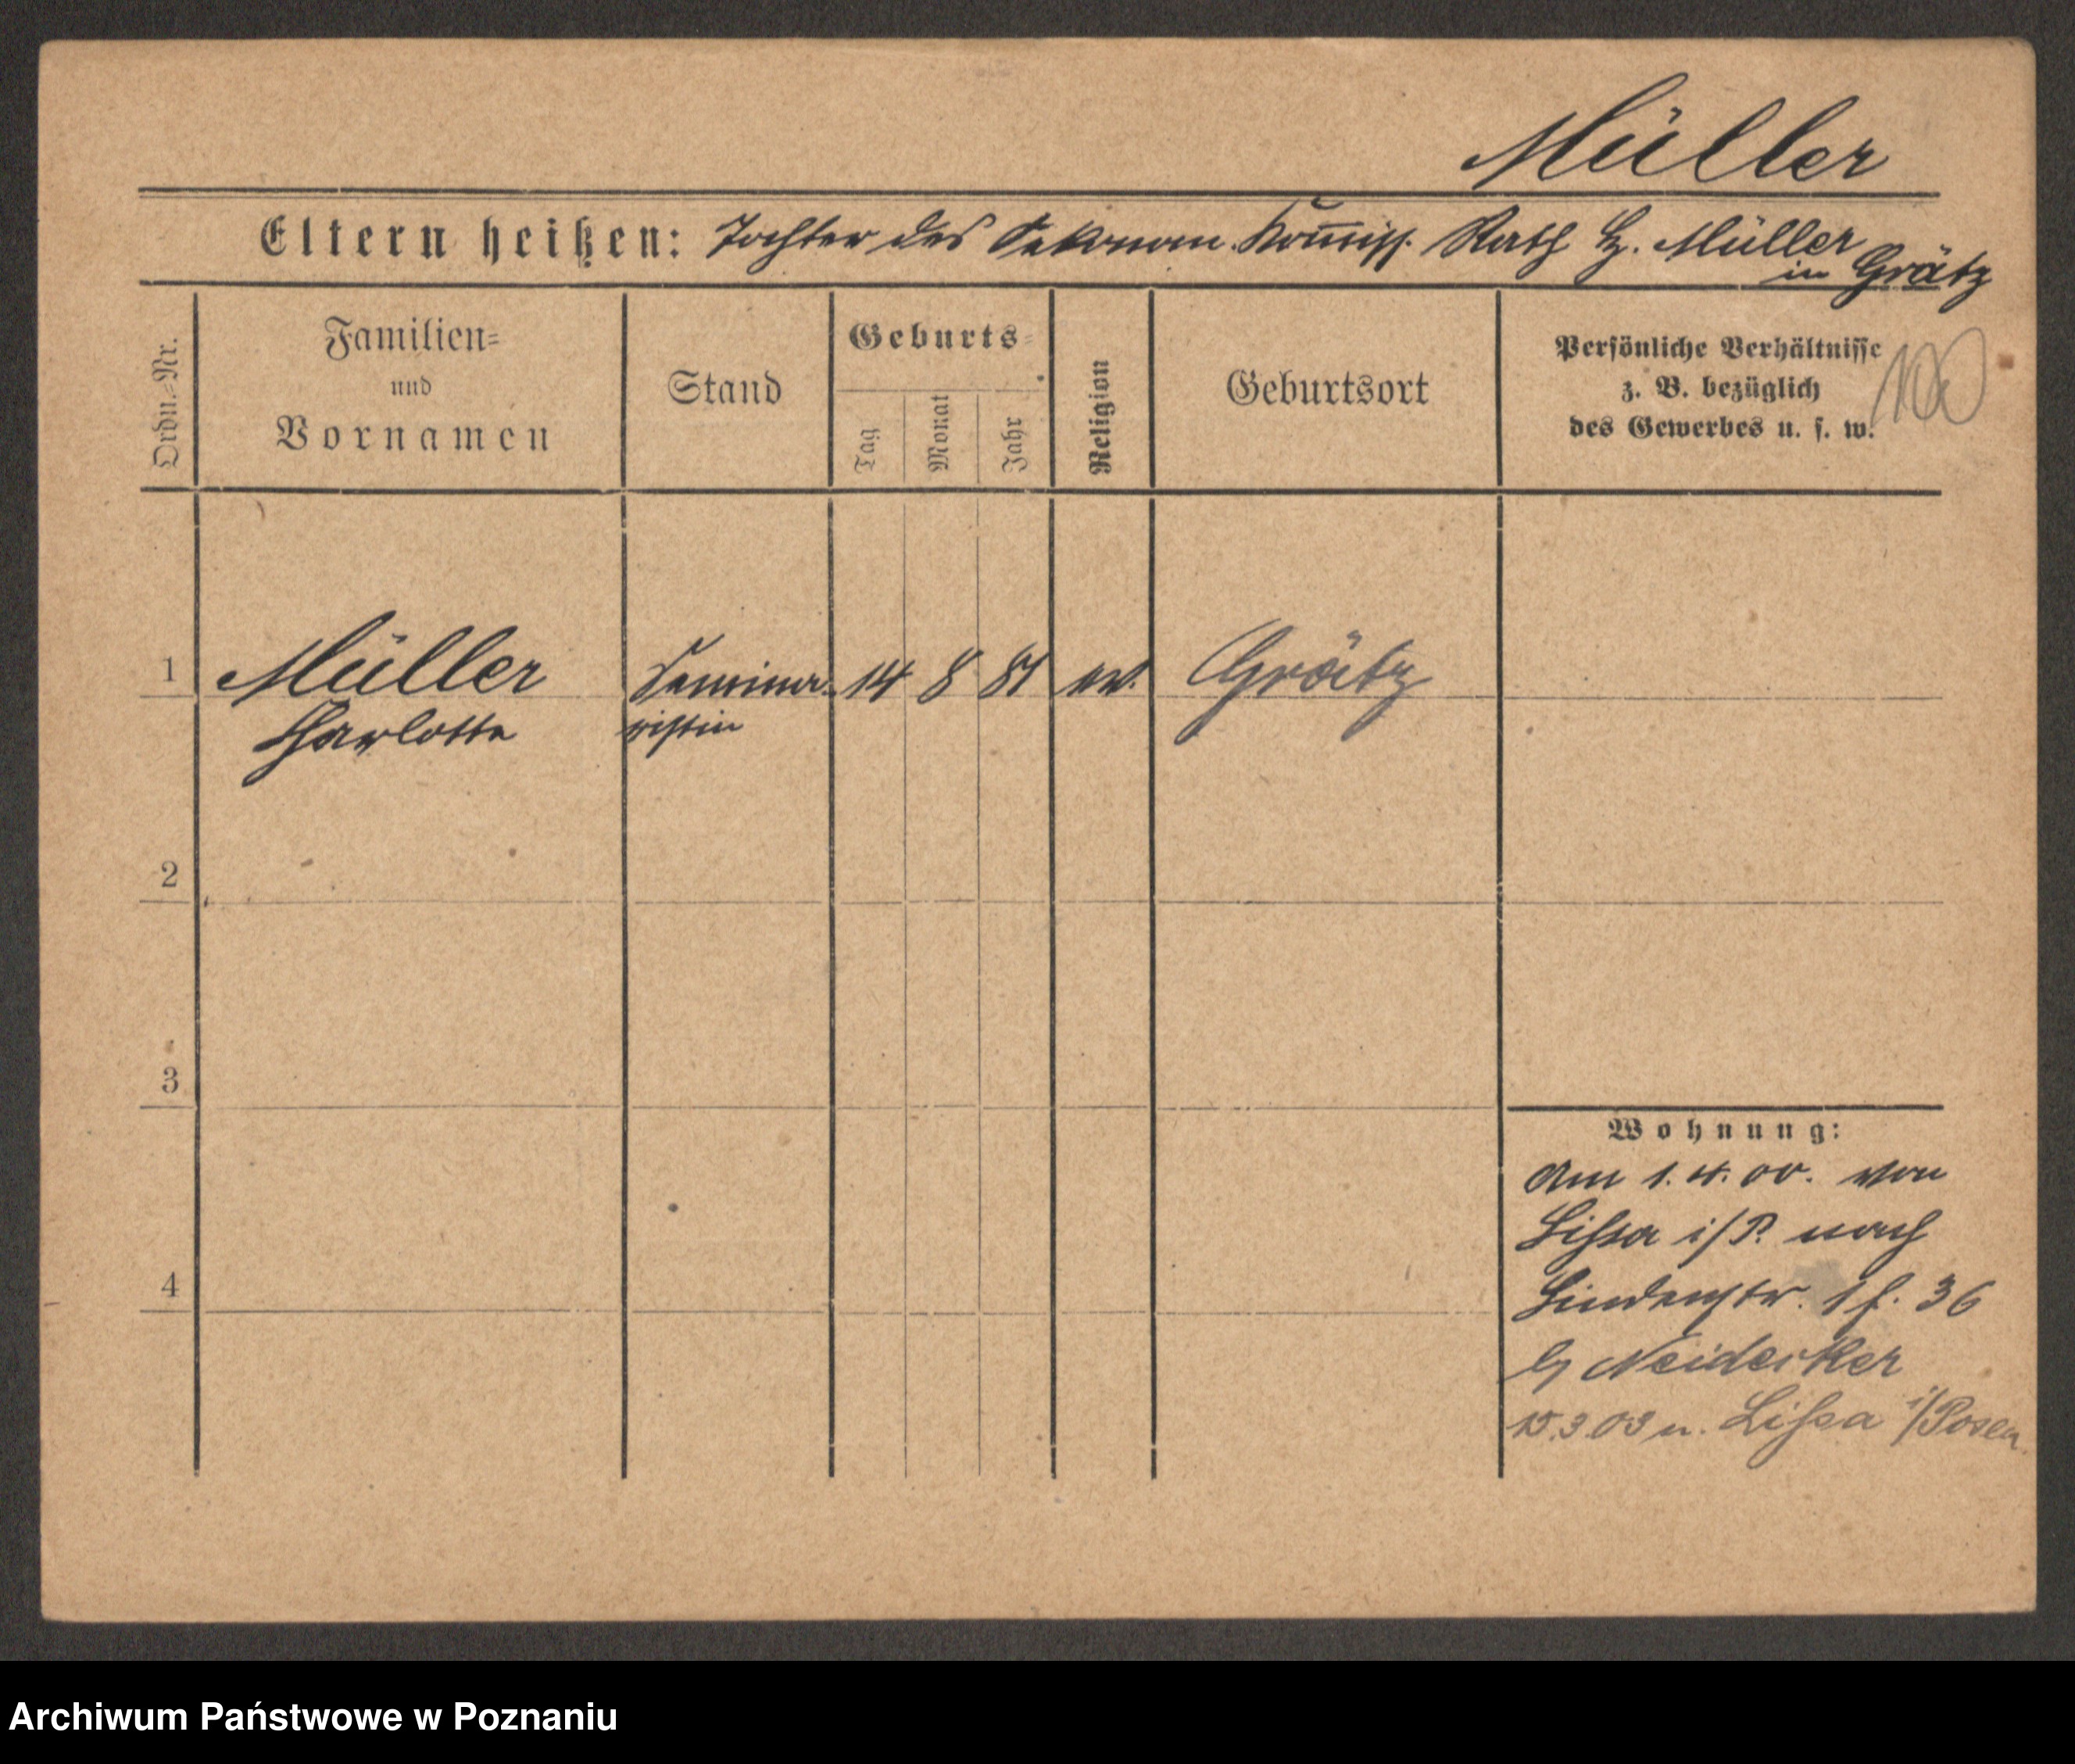 Müller
Eltern heißen: Tochter des Oekonom. Kom̅iss. Rath H. Müller
in Grätz
Ordn.=Nr.
Familien=
und
Vornamen
Stand
Geburts=
Tag
Monat
Jahr
Religion
Geburtsort
Persönliche Verhältnisse
z. B. bezüglich
des Gewerbes u. s. w.
100
1 Müller Semina- 14 8 81 ev. Grätz
Charlotte ristin
2
3
4
Wohnung:
Am 1.4.00. von
Lissa i/P. nach
Lindenstr. 1 f. 36
b/ Neidecker
15.3.03 n. Lissa i/Posen.
Archiwum Państwowe w Poznaniu